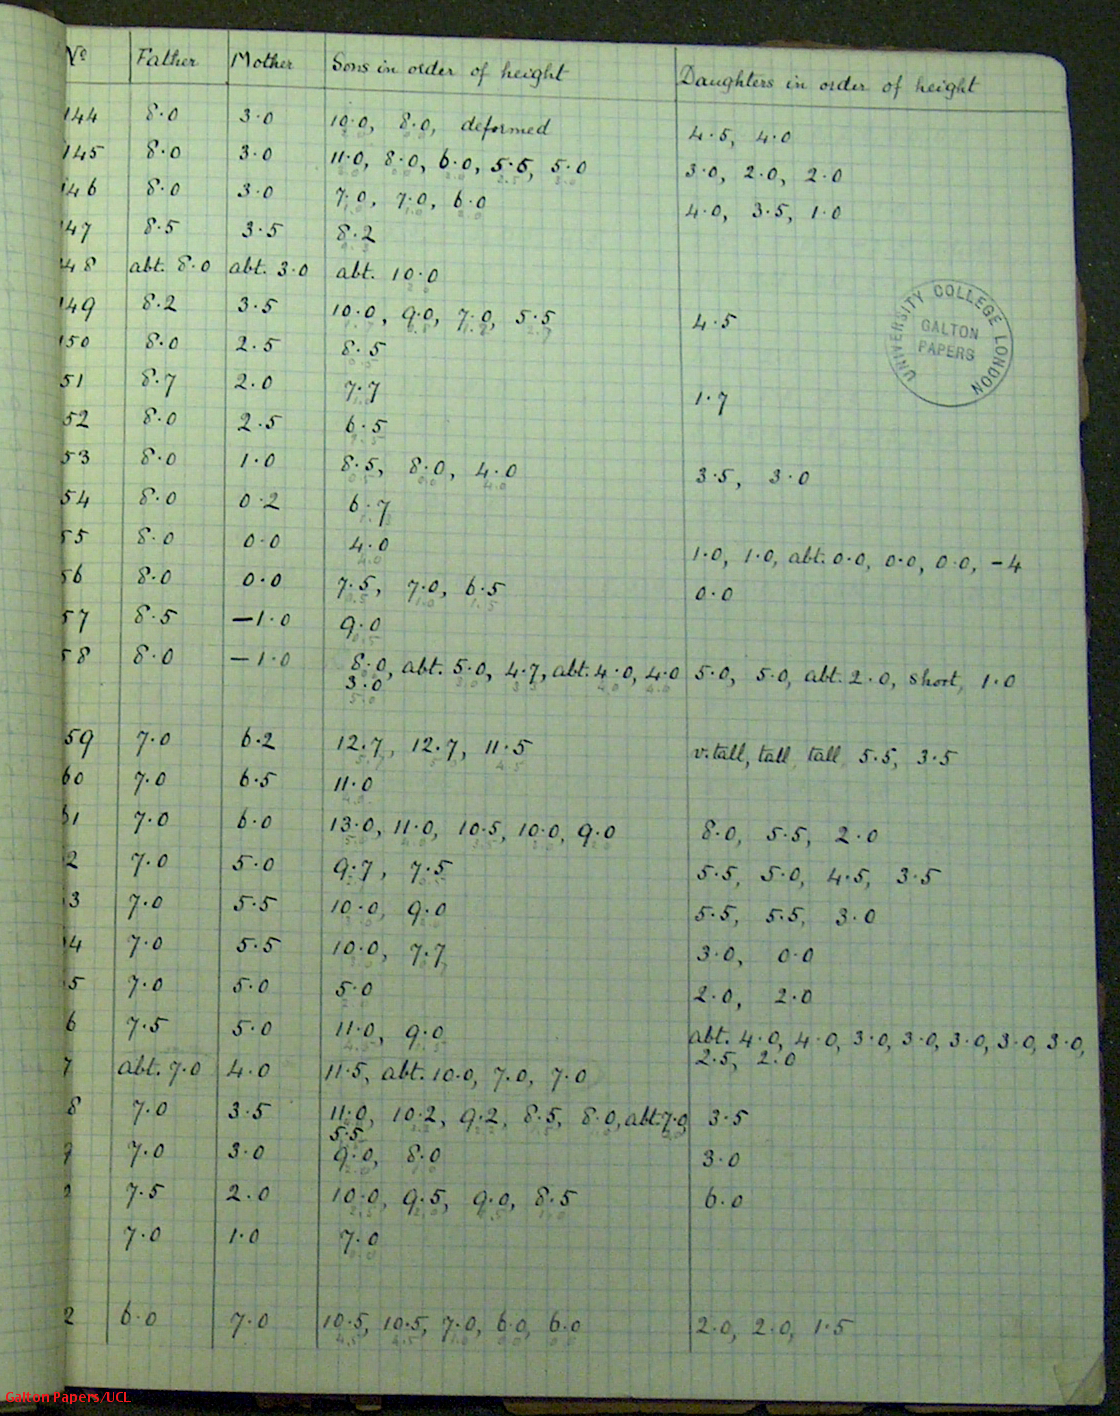 No Father Mother Sons in order of height Daughters in order of height
144 8.0 3.0 10.0, 8.0, deformed 4.5, 4.0
145 8.0 3.0 11.0, 8.0, 6.0, 5.5, 5.0 3.0, 2.0, 2.0
146 8.0 3.0 7.0, 7.0, 6.0 4.0, 3.5, 1.0
147 8.5 3.5 8.2
48 abt. 8.0 abt. 3.0 abt. 10.0
149 8.2 3.5 10.0, 9.0, 7.0, 5.5 4.5
150 8.0 2.5 8.5
51 8.7 2.0 7.7 1.7
52 8.0 2.5 6.5
53 8.0 1.0 8.5, 8.0, 4.0 3.5, 3.0
54 8.0 0.2 6.7
55 8.0 0.0 4.0 1.0, 1.0, abt. 0.0, 0.0, 0.0, -4
56 8.0 0.0 7.5, 7.0, 6.5 0.0
57 8.5 -1.0 9.0
58 8.0 -1.0 8.0, abt. 5.0, 4.7, abt. 4.0, 4.0 5.0, 5.0, abt. 2.0, short, 1.0
3.0
59 7.0 6.2 12.7, 12.7, 11.5 v. tall, tall, tall, 5.5, 3.5
60 7.0 6.5 11.0
61 7.0 6.0 13.0, 11.0, 10.5, 10.0, 9.0 8.0, 5.5, 2.0
2 7.0 5.0 9.7, 7.5 5.5, 5.0, 4.5, 3.5
3 7.0 5.5 10.0, 9.0 5.5, 5.5, 3.0
4 7.0 5.5 10.0, 7.7 3.0, 0.0
5 7.0 5.0 5.0 2.0, 2.0
6 7.5 5.0 11.0, 9.0 abt. 4.0, 4.0, 3.0, 3.0, 3.0, 3.0, 3.0,
2.5, 2.0
7 abt. 7.0 4.0 11.5, abt. 10.0, 7.0, 7.0
8 7.0 3.5 11.0, 10.2, 9.2, 8.5, 8.0, abt. 7.0 3.5
5.5
9 7.0 3.0 9.0, 8.0 3.0
7.5 2.0 10.0, 9.5, 9.0, 8.5 6.0
7.0 1.0 7.0
2 6.0 7.0 10.5, 10.5, 7.0, 6.0, 6.0 2.0, 2.0, 1.5
UNIVERSITY COLLEGE LONDON
GALTON
PAPERS
Galton Papers/UCL